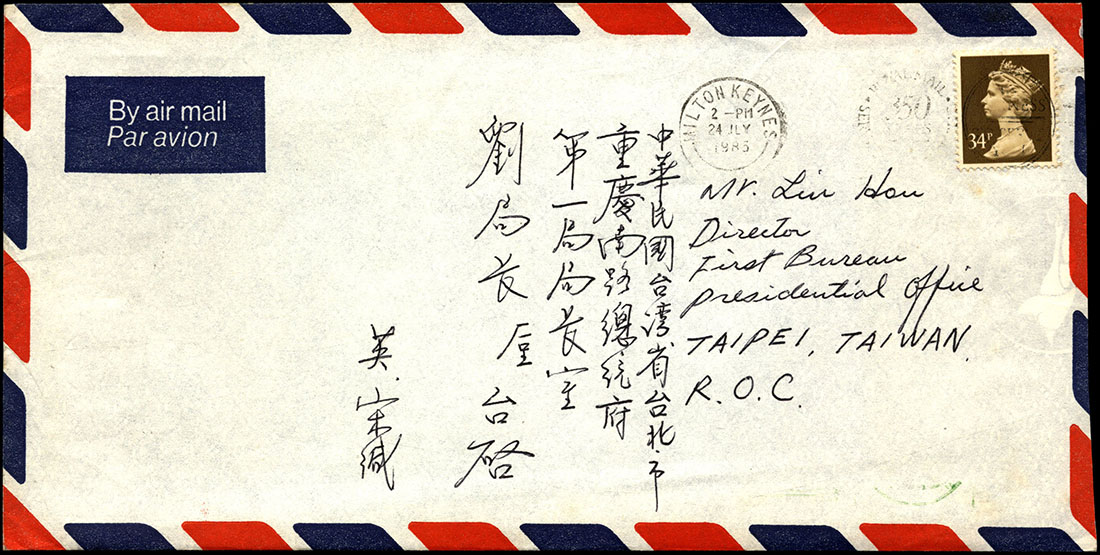 By air mail
Par avion
MILTON KEYNES
2 -PM
24 JLY
1985
ROYAL MAIL
350
34P
Mr. Liu Hou
Director
First Bureau
Presidential Office
TAIPEI, TAIWAN.
R.O.C.
中華民國台湾省台北市
重慶南路總統府
第一局局長室
劉局長 垕 台啓
英.宋緘